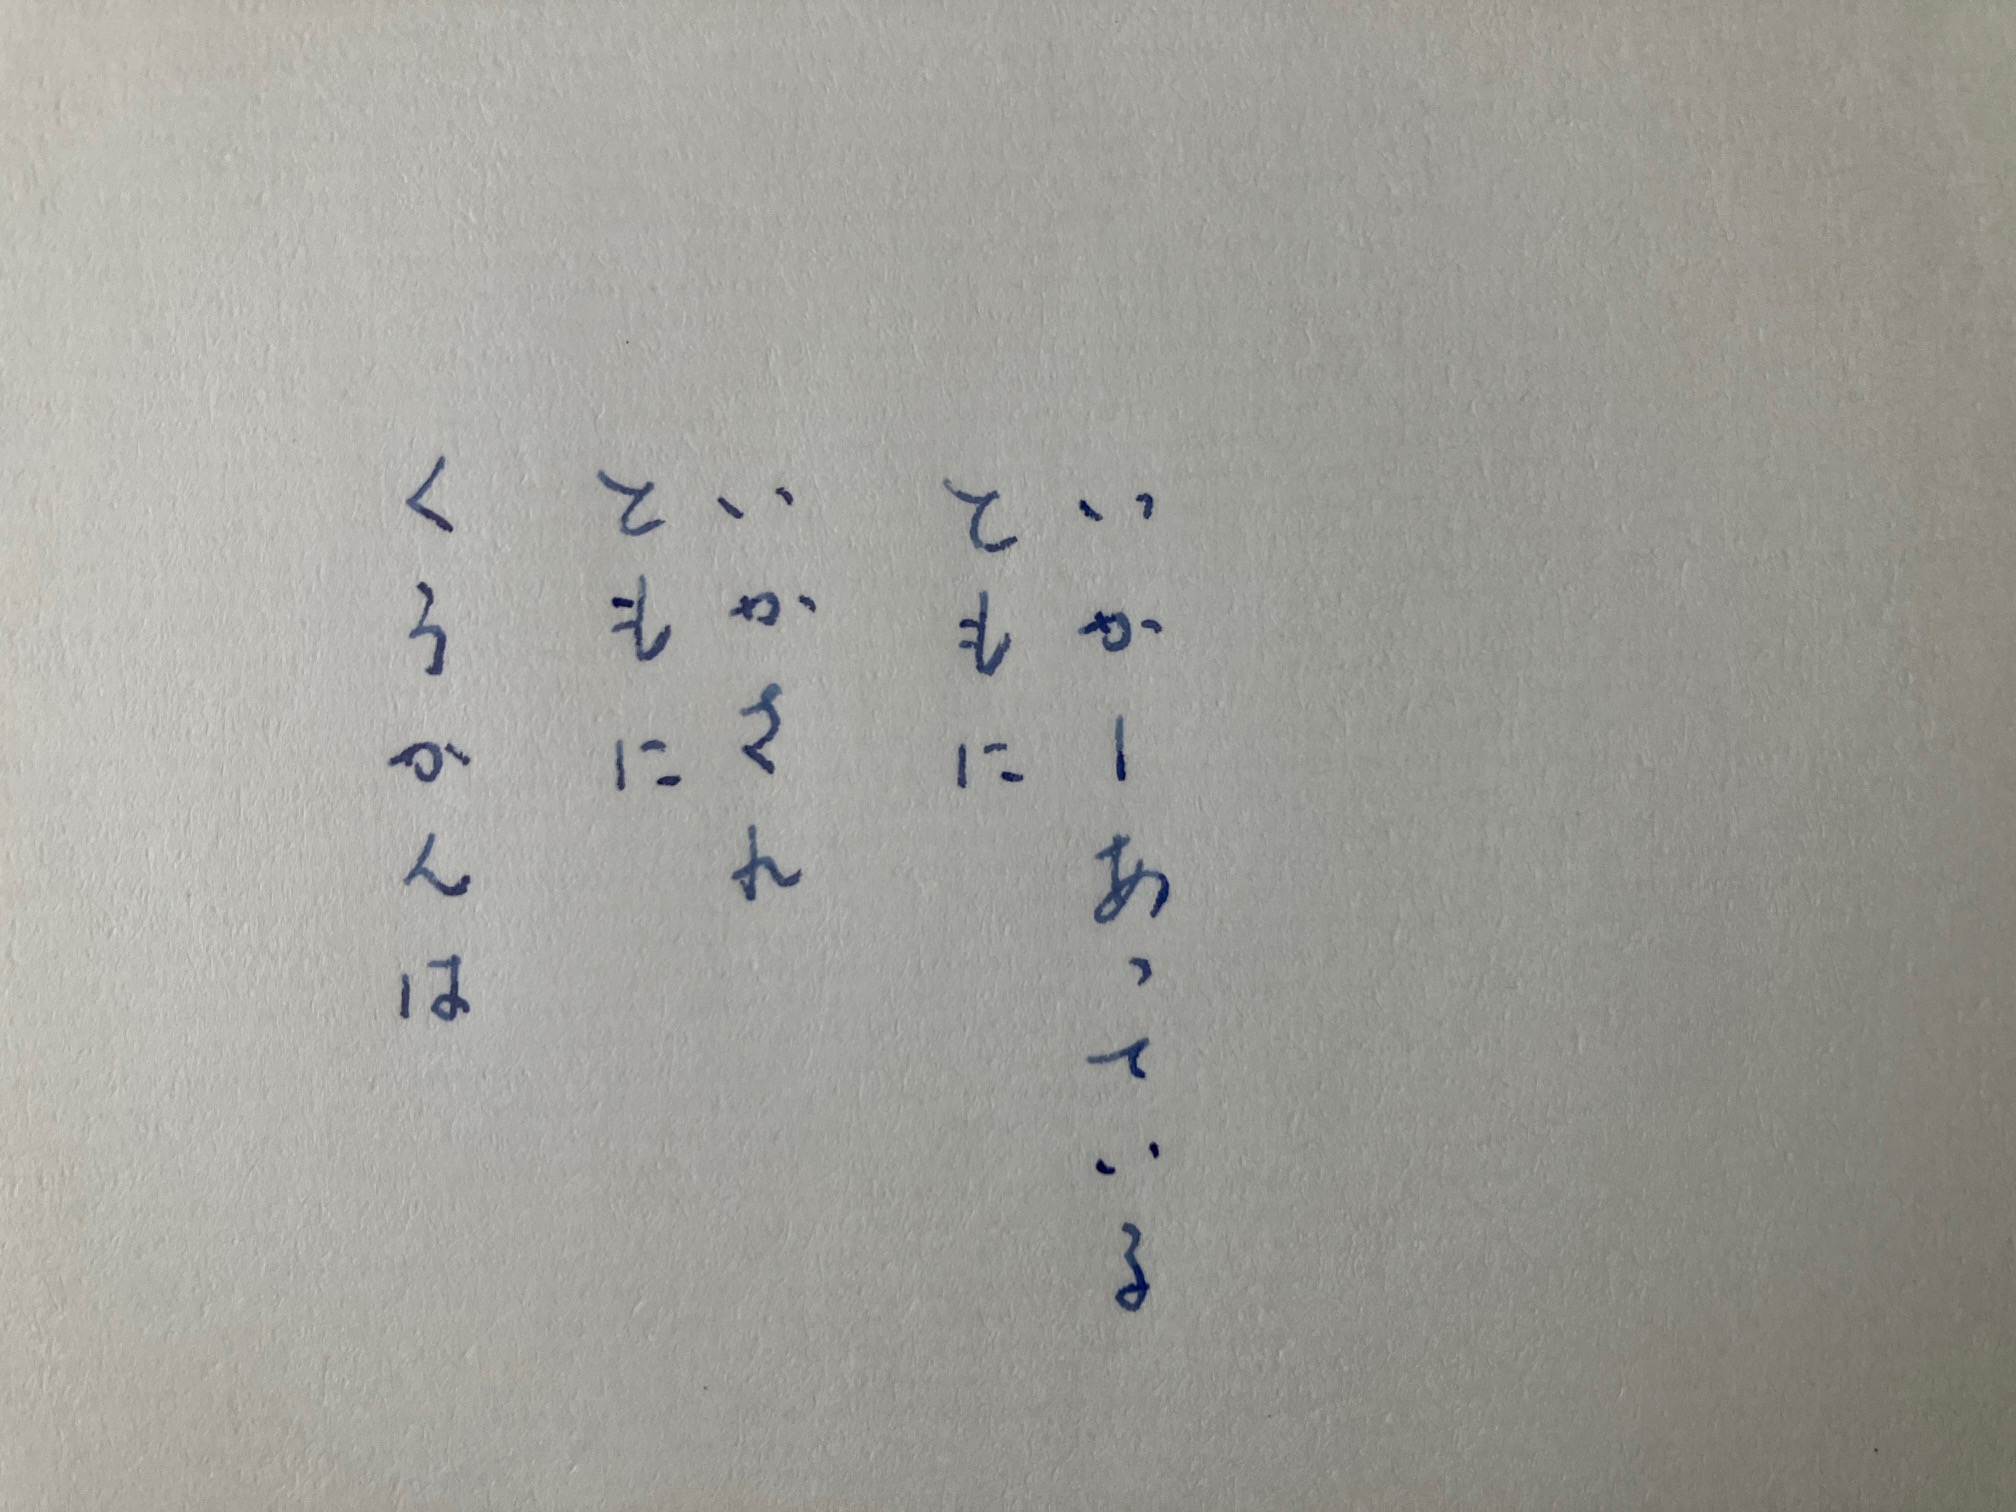 くうかんは
ともに
いかされ
ともに
いかしあっている